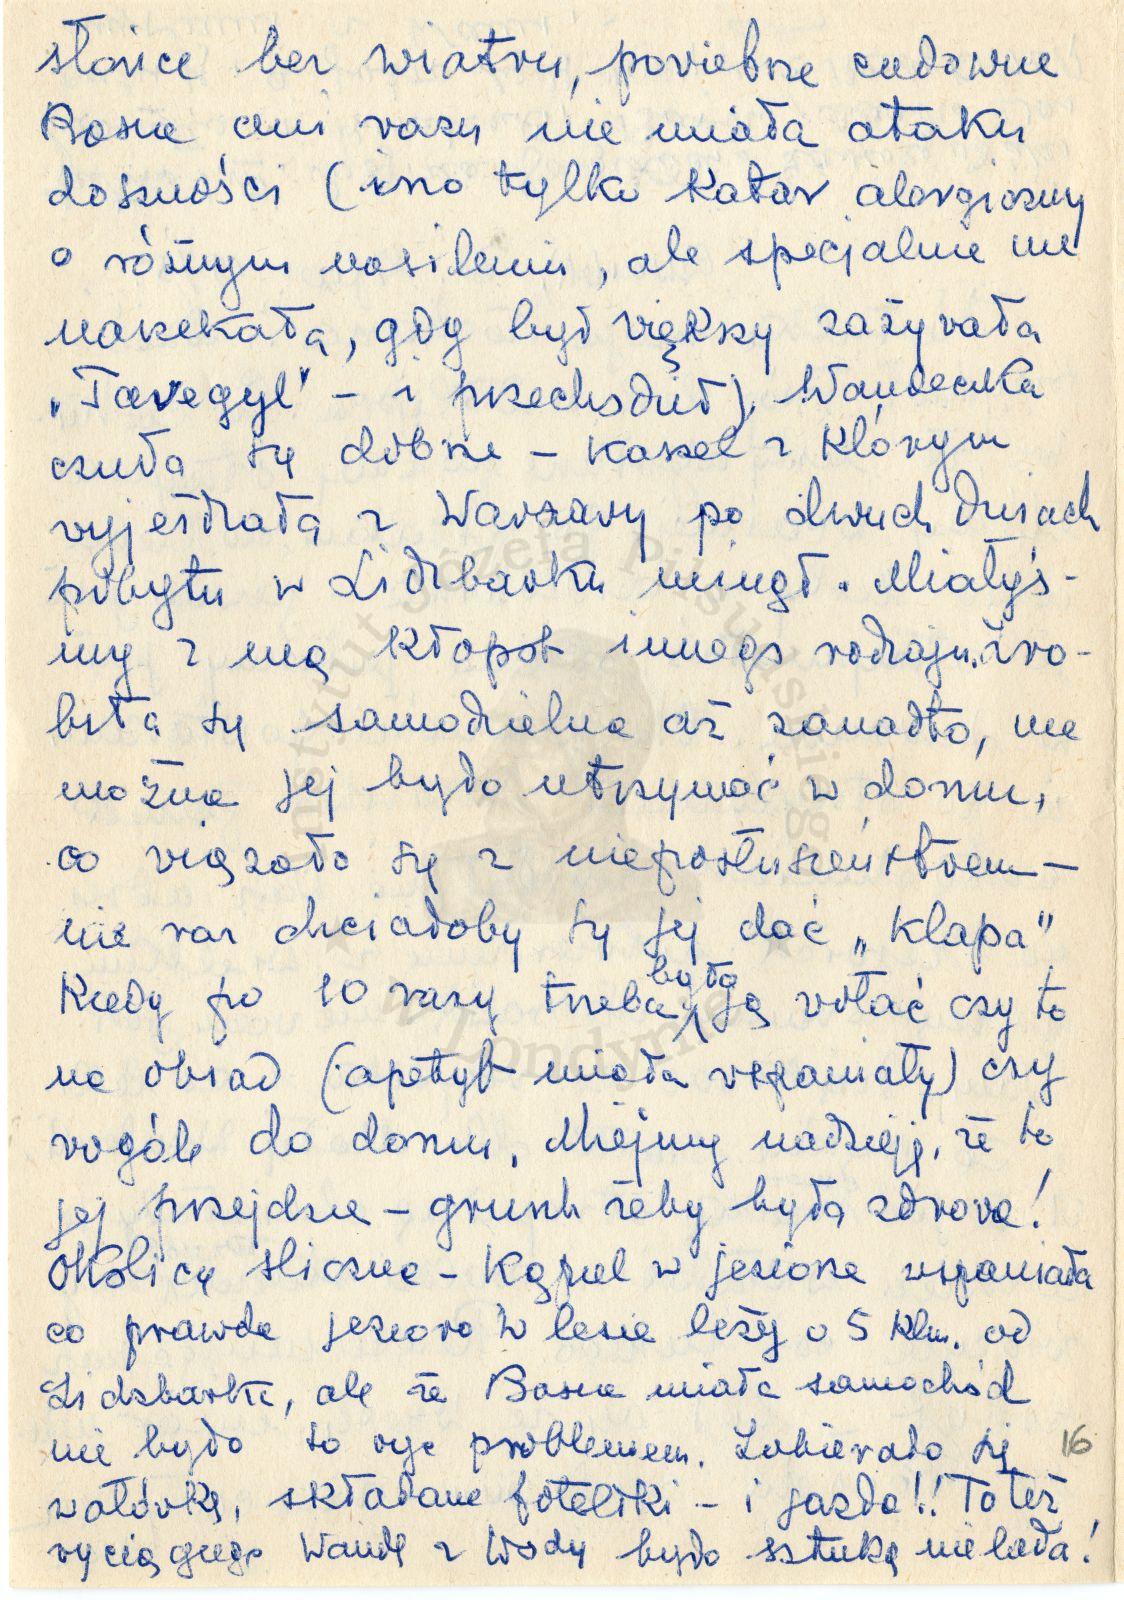 słońce bez wiatru, powietrze cudowne
Basia ani razu nie miała ataku
duszności (ino tylko katar alergiczny
o różnym nasileniu, ale specjalnie nie
narzekała, gdy był większy zażywała
"Tavegyl" - i przechodził), Wandeczka
czuła się dobrze - kaszel z którym
wyjeżdżała z Warszawy po dwuch dniach
pobytu w Lidzbarku minął. Miałyś-
my z nią kłopot innego rodzaju. Zro-
biła się samodzielna aż zanadto, nie
można jej było utrzymać w domu,
co wiązało się z nieposłuszeństwem -
nie raz chciałoby się jej dać "klapa"
kiedy po 10 razy trzeba było ją wołać czy to
na obiad (apetyt miała wspaniały) czy
wogóle do domu. Miejmy nadzieję, że to
jej przejdzie - grunt żeby była zdrowa!
Okolice śliczne - kąpiel w jeziorze wspaniała
co prawda jezioro w lesie leży o 5 klm. od
Lidzbarka, ale że Basia miała samochód
nie było to więc problemem. Zabierało się 16
wałówkę, składane foteliki - i jazda!! Toteż
wyciągnąć Wandę z wody było sztuką nielada!
Instytut Józefa Piłsudskiego
w Londynie